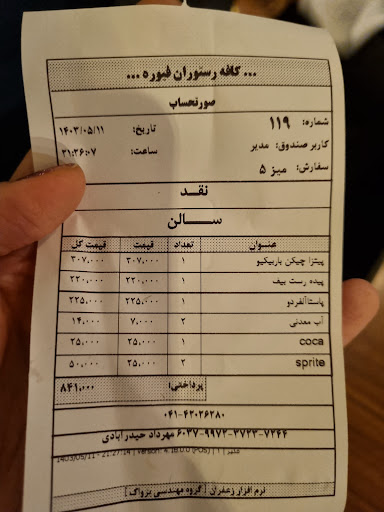 ... کافه رستوران فیوره ...
صورتحساب
شماره: ۱۱۹ تاریخ: ۱۴۰۳/۰۵/۱۱
کاربر صندوق: مدیر ساعت: ۲۱:۲۶:۰۷
سفارش: میز ۵
نقد
سالن
عنوان تعداد قیمت قیمت کل
پیتزا چیکن باربیکیو ۱ ۳۰۷،۰۰۰ ۳۰۷،۰۰۰
پیده رست بیف ۱ ۲۲۰،۰۰۰ ۲۲۰،۰۰۰
پاستاآلفردو ۱ ۲۲۵،۰۰۰ ۲۲۵،۰۰۰
آب معدنی ۲ ۷،۰۰۰ ۱۴،۰۰۰
coca ۱ ۲۵،۰۰۰ ۲۵،۰۰۰
sprite ۲ ۲۵،۰۰۰ ۵۰،۰۰۰
پرداختی: ۸۴۱،۰۰۰
۰۴۱-۴۲۰۲۶۲۸۰
۶۰۳۷-۹۹۷۲-۳۷۲۳-۷۲۴۴ مهرداد حیدرآبادی
1403/05/11 - 21:27:14 | Version: 4.16.0.0 (POS) | 1 | مدیر
نرم افزار زعفران [گروه مهندسی پژواک]